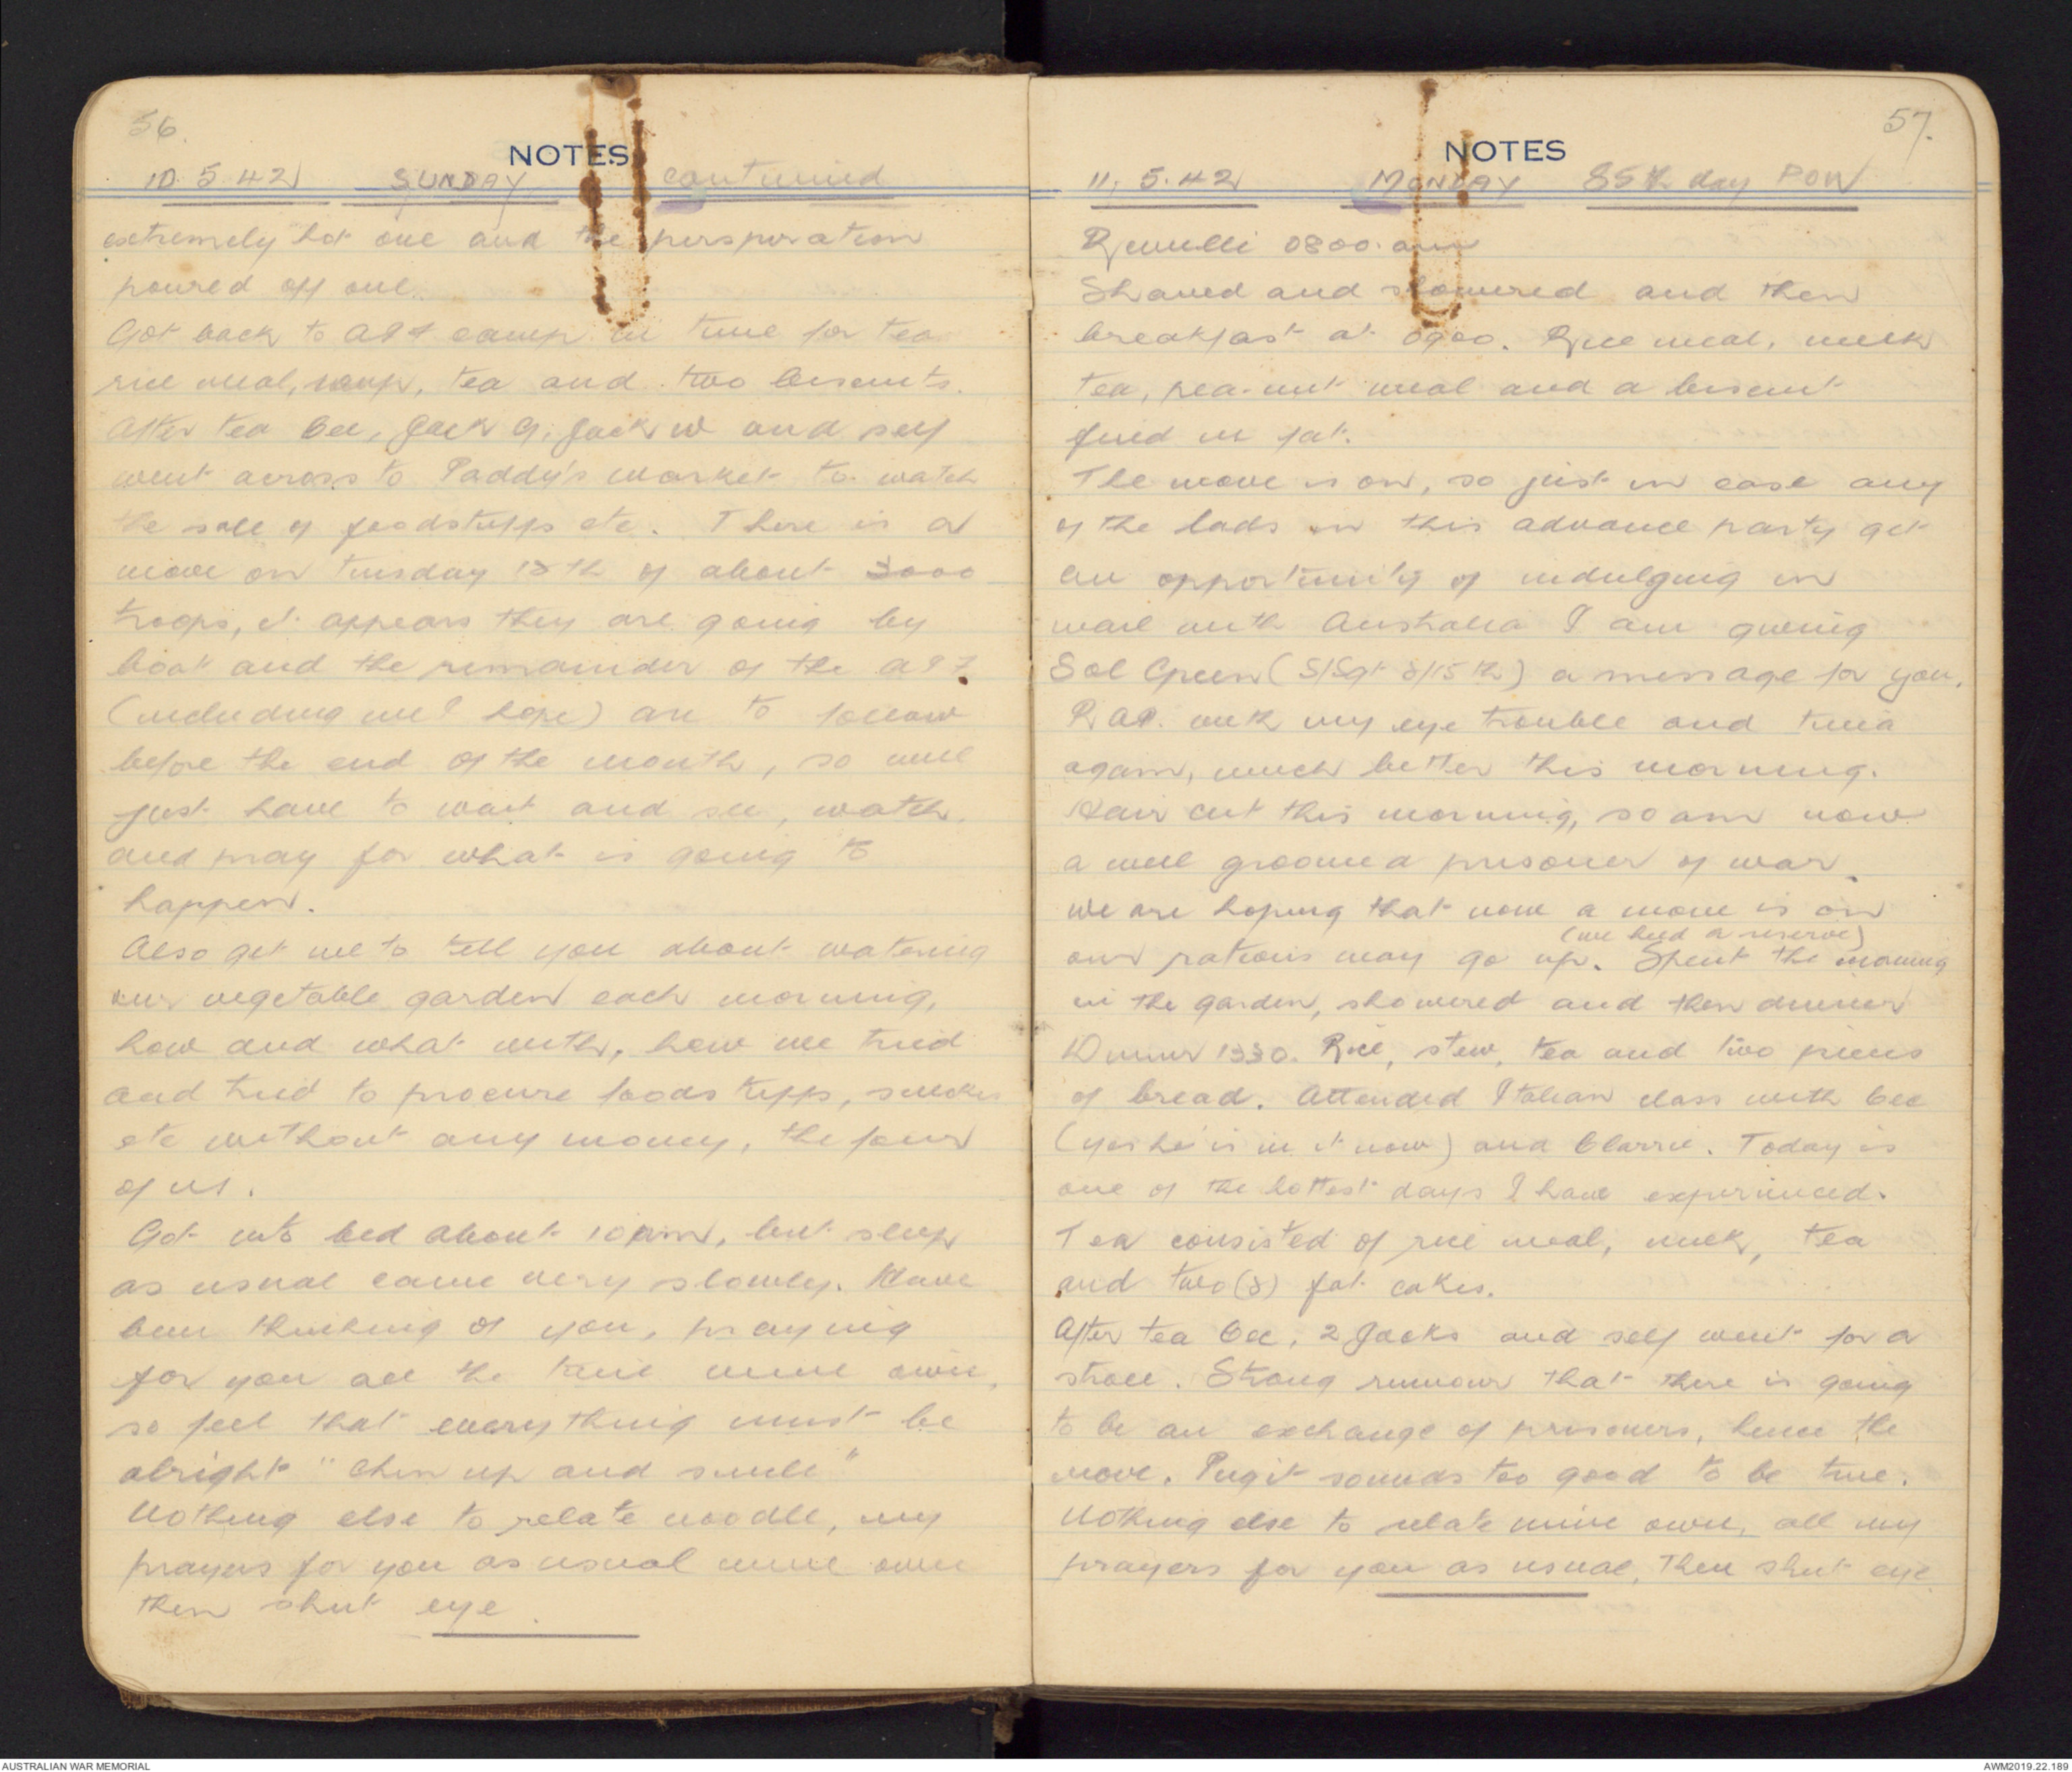 56.
NOTES
10.5.42 SUNDAY continued
extremely hot one and the perspiration
poured off one.
Got back to AIF camp in time for tea
rice meal, soup, tea and two biscuits.
After tea Cec, Jack G, Jack W and self
went across to Paddy's market to watch
the sale of foodstuffs etc. There is a
move on Tuesday of about 3000
troops, it appears they are going by
boat and the remainder of the AIF
(including me I hope) are to follow
before the end of the month, so will
just have to wait and see, watch
and pray for what is going to
happen.
Also get me to tell you about watering
our vegetable garden each morning,
how and what with, how we tried
and tried to procure foodstuffs, smokes
etc without any money, the four
of us.
Got into bed about 10 pm, but sleep
as usual came very slowly. Have
been thinking of you, praying
for you all the time mine own,
so feel that everything must be
alright "Chin up and smile"
Nothing else to relate noodle, my
prayers for you as usual mine own
then shut eye.
57.
NOTES
11.5.42 MONDAY 85th day POW
Reveille 0800 am
Shaved and showered and then
breakfast at 0900. Rice meal, milk
tea, pea-nut meal and a biscuit
fried in fat.
The move is on, so just in case any
of the lads in this advance party get
an opportunity of indulging in
mail with Australia I am giving
Sol Green (S/Sgt 2/15th) a message for you.
RAP. with my eye trouble and tinea
again, much better this morning.
Hair cut this morning, so am now
a well groomed prisoner of war.
We are hoping that now a move is on
(we held a reserve)
our rations may go up. Spent the morning
in the garden, showered and then dinner
Dinner 1330. Rice, stew, tea and two pieces
of bread. Attended Italian class with Cec
(yes he is in it now) and Clarrie. Today is
one of the hottest days I have experienced.
Tea consisted of rice meal, milk, tea
and two (2) fat cakes.
After tea Cec, 2 Jacks and self went for a
stroll. Strong rumour that there is going
to be an exchange of prisoners, hence the
move. Pugit sounds too good to be true.
Nothing else to relate mine own, all my
prayers for you as usual, then shut eye
AUSTRALIAN WAR MEMORIAL
AWM2019.22.189